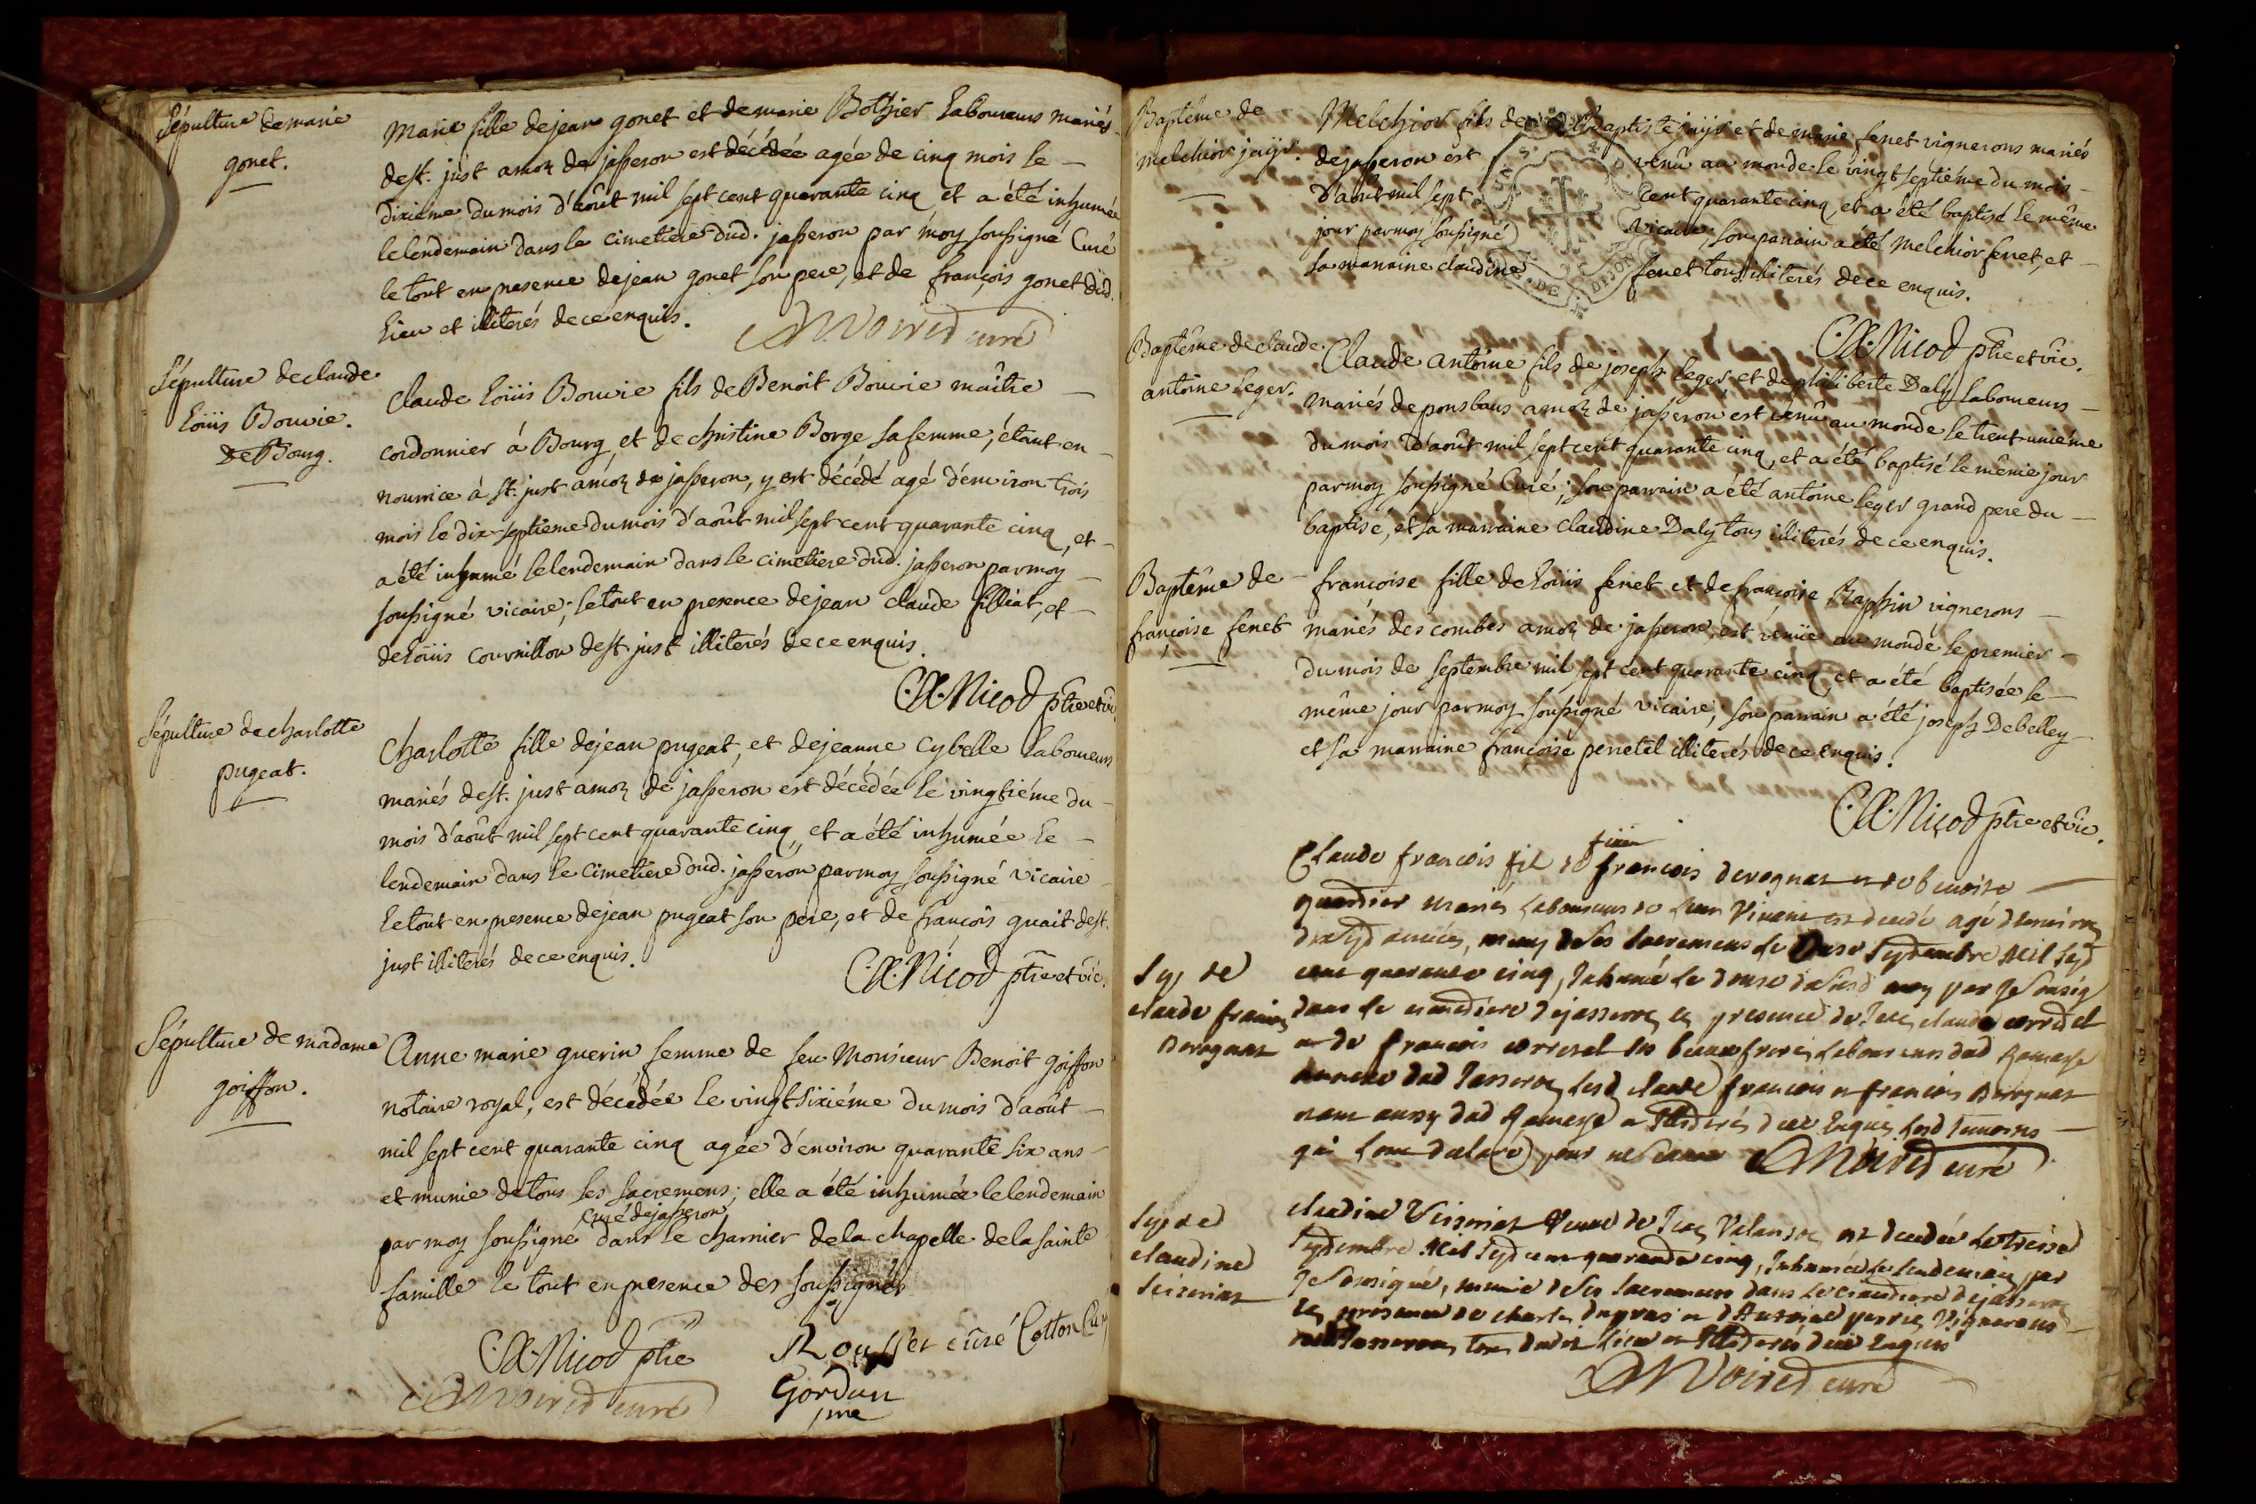 Sépulture de marie
gonet.
Marie fille de jean gonet et de marie Bothier Laboureurs mariés
de st. just amoz de jasseron est décédée agée de cinq mois le
dixieme du mois d'août mil sept cent quarante cinq et a été inhumée
le lendemain dans le cimetiere dud. jasseron par moy soussigné Curé
le tout en presence de jean gonet son pere, et de françois gonet dud.
Lieu et illiterés de ce enquis.
Sépulture de claude
Loüis Bouvie.
de Bourg.
Claude Loüis Bouvie fils de Benoit Bouvie maître
cordonnier à Bourg et de christine Borge sa femme, étant en
nourrice à st. just amoz de jasseron, y est décédé agé d'environ trois
mois le dix-septieme du mois d'août mil sept cent quarante cinq, et
a été inhumé le lendemain dans le cimetiere dud. jasseron par moy
soussigné vicaire; le tout en presence de jean claude filliat, et
de Loüis cournillon de st. just illiterés de ce enquis.
C.A. Nicod ptre et vic.
Sépulture de charlotte
pugeat.
Charlotte fille de jean pugeat, et de jeanne Cybelle Laboureurs
mariés de st. just amoz de jasseron est décédée le vingtiéme du
mois d'août mil sept cent quarante cinq, et a été inhumée le
lendemain dans le cimetiere dud. jasseron par moy soussigné vicaire
Le tout en presence de jean pugeat son pere, et de françois guait de st.
just illiterés de ce enquis.
C.A. Nicod ptre et vic.
Sépulture de madame
goiffon.
Anne marie guerin femme de feu Monsieur Benoit goiffon
notaire royal, est décédée le vingtsixiéme du mois d'août
mil sept cent quarante cinq agée d'environ quarante six ans
et munie de tous ses sacremens; elle a été inhumée le lendemain
curé de jasseron
par moy soussigné dans le charnier de la chapelle de la sainte
famille le tout en presence des soussignés
C.A. Nicod ptre Rousset curé Cotton Curé
curé Gordun
Baptême de
melchior jayr.
Melchior fils de Baptiste jayr et de marie fenet vignerons mariés
de jasseron est venû au monde le vingt septiéme du mois
d'août mil sept cent quarante cinq et a été baptisé le même
jour par moy soussigné vicaire; son parrain a été Melchior fenet, et
sa marraine claudine fenet tous illiterés de ce enquis.
DE DIJON
C.A. Nicod ptre et vic.
Baptême de claude
antoine leger.
Claude antoine fils de joseph leger, et de philiberte Daly laboureurs
mariés de ponsbaus amoz de jasseron est venû au monde le trent uniéme
du mois d'août mil sept cent quarante cinq, et a été baptisé le même jour
par moy soussigné Curé; son parrain a été antoine leger grand pere du
baptisé, et sa marraine claudine Daly tous illiterés de ce enquis.
Baptême de
françoise fenet
françoise fille de Loüis fenet et de françoise Raphin vignerons
mariés des combes amoz de jasseron, est venüe au monde le premier
du mois de septembre mil sept cent quarante cinq, et a été baptisée le
même jour par moy soussigné vicaire; son parrain a été joseph Debelley
et sa marraine françoise perretel illiterés de ce enquis.
C.A. Nicod ptre et vic.
Sep de
claude françois
Derognat
Claude françois fil de françois derognat et de benoiste
mariés Laboureurs de est decedé agé d'environ
dixsept années, muny de ses sacremens le onze septembre mil sept
cent quarante cinq, Inhumé le douze par Je sousig
dans le cimetiere de jasseron en presence de Jean claude
et de françois ses beaux freres Laboureurs dud
dud Jasseron Lesd claude françois et françois Derognat
Illiterés de ce Enquis Lesd temoins
qui l'ont declaré pour curé
Sep de
claudine
claudine veuve de Jean est decedée le treise
septembre Mil sept cent quarante cinq, Inhumée le lendemain par
Je sousigné, munie de ses sacremens dans le cimetiere de jasseron
En presence de charles et d'Antoine Vignerons
tous dudit Lieu et Illiterés de ce Enquis
curé